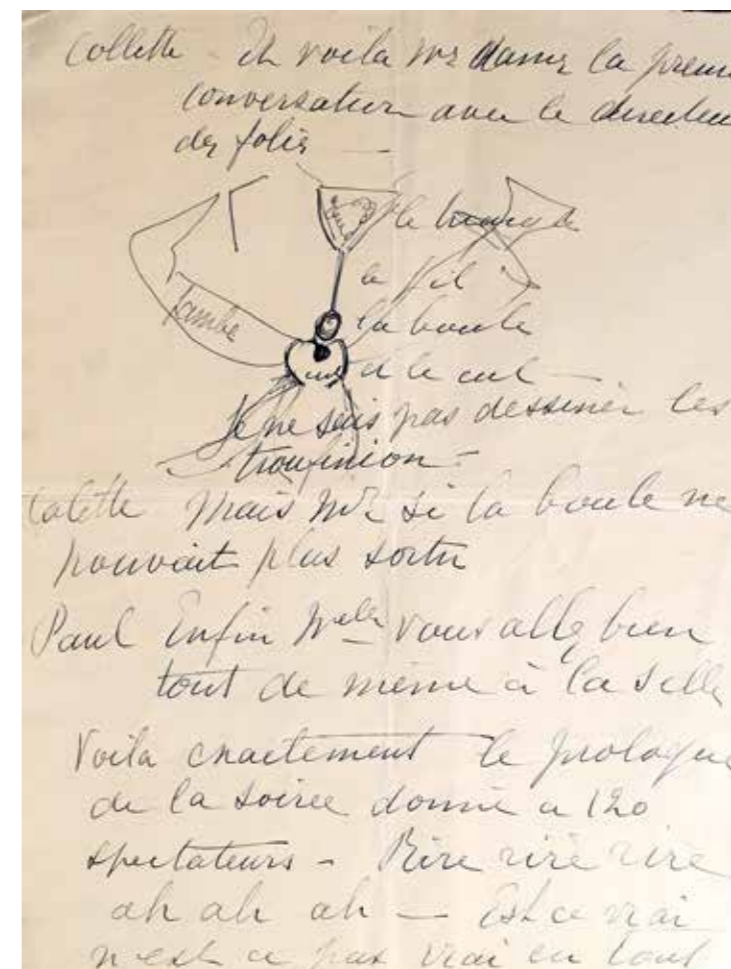 Collette Et voila Mrs dames la premi
conversation avec le directeu
des folies —
le
jambe
le fil
la boule
cul
et le cul —
Je ne sais pas dessiner les
troufinion —
Colette Mais Mr si la boule ne
pouvait plus sortir
Paul Enfin Melle vous allez bien
tout de même à la selle
Voila exactement le prologue
de la soirée donné a 120
spectateurs - Rire rire rire
ah ah ah — Est ce vrai
n'est ce pas vrai en tout